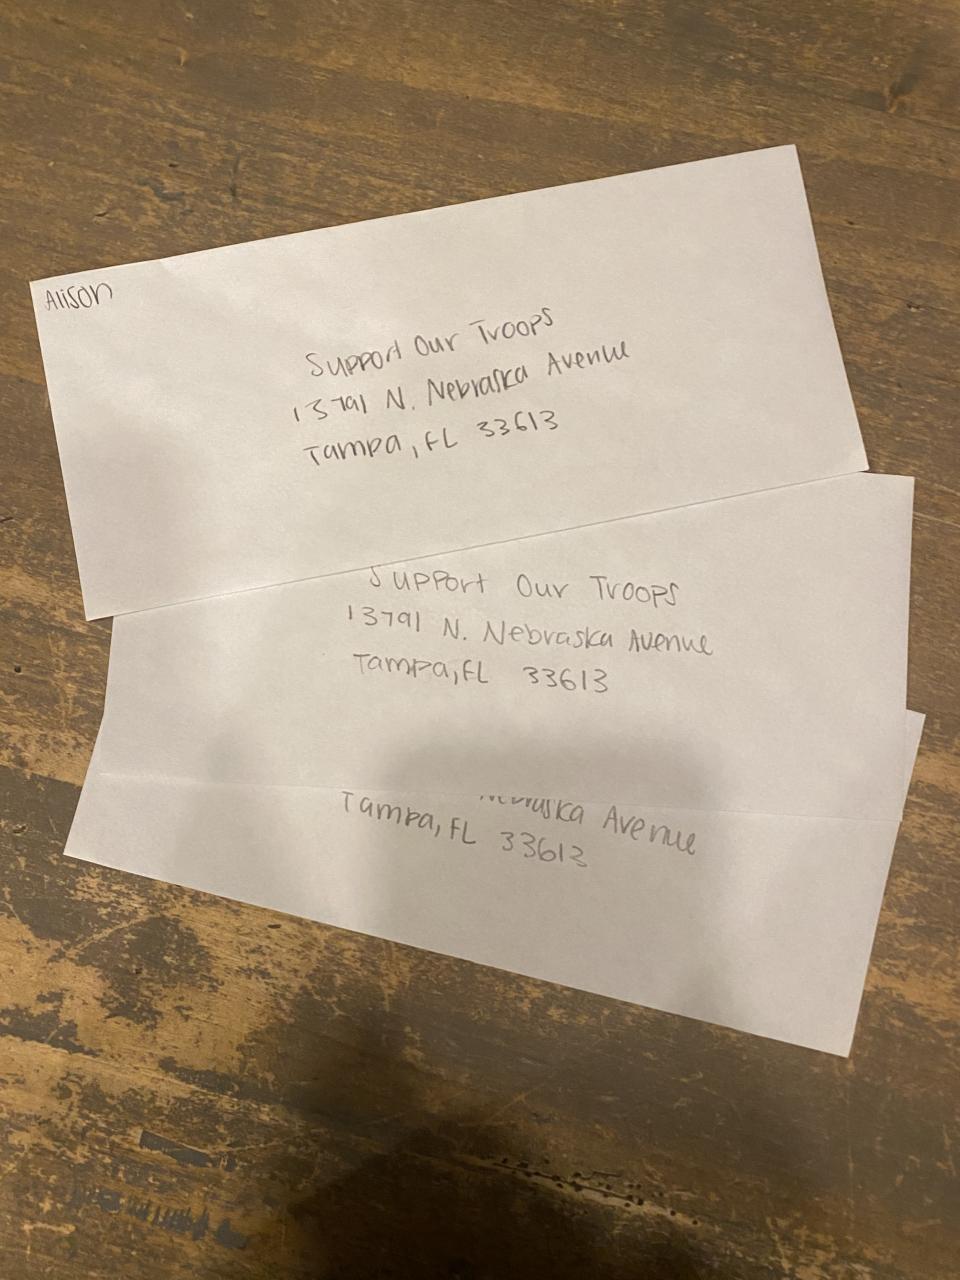 Alison
Support Our Troops
13791 N. Nebraska Avenue
Tampa, FL 33613
Support Our Troops
13791 N. Nebraska Avenue
Tampa, FL 33613
Nebraska Avenue
Tampa, FL 33613